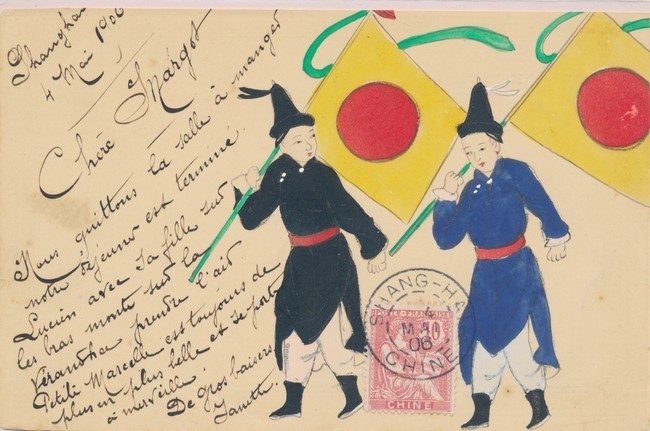 Shanghai
4 Mai 1906
Chère Margot
Nous quittons la salle à manger
notre déjeuner est terminé.
Lucien avec sa fille sur
les bras monte sur la
vérandha prendre l'air
Petite Marcelle est toujours de
plus en plus belle et se porte
à merveille.
De gros baisers
SHANG-HAI
MAI
06
CHINE
POSTE FRANÇAISE
10
CHINE